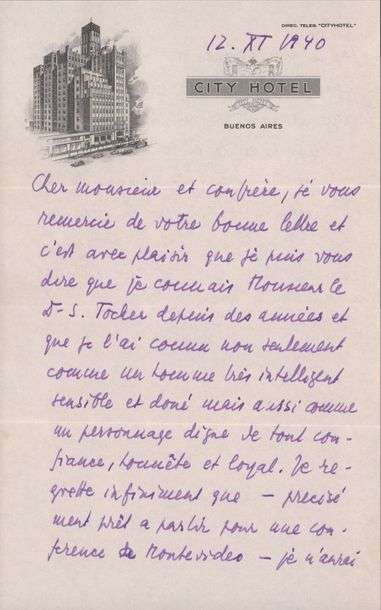 DIREC. TELEG. "CITYHOTEL"
12. XI 1940
CITY HOTEL
BUENOS AIRES
Cher monsieur et confrère, je vous
remercie de votre bonne lettre et
c'est avec plaisir que je puis vous
dire que je connais Monsieur le
D-S. Tocker depuis des années et
que je l'ai connu non seulement
comme un homme très intelligent
sensible et doné mais aussi comme
un personnage digne de tout con-
fiance, honnête et loyal. Je re-
grette infiniment que – precisé
ment prêt a partir pour une con-
ference de Montevideo – je n'aurai